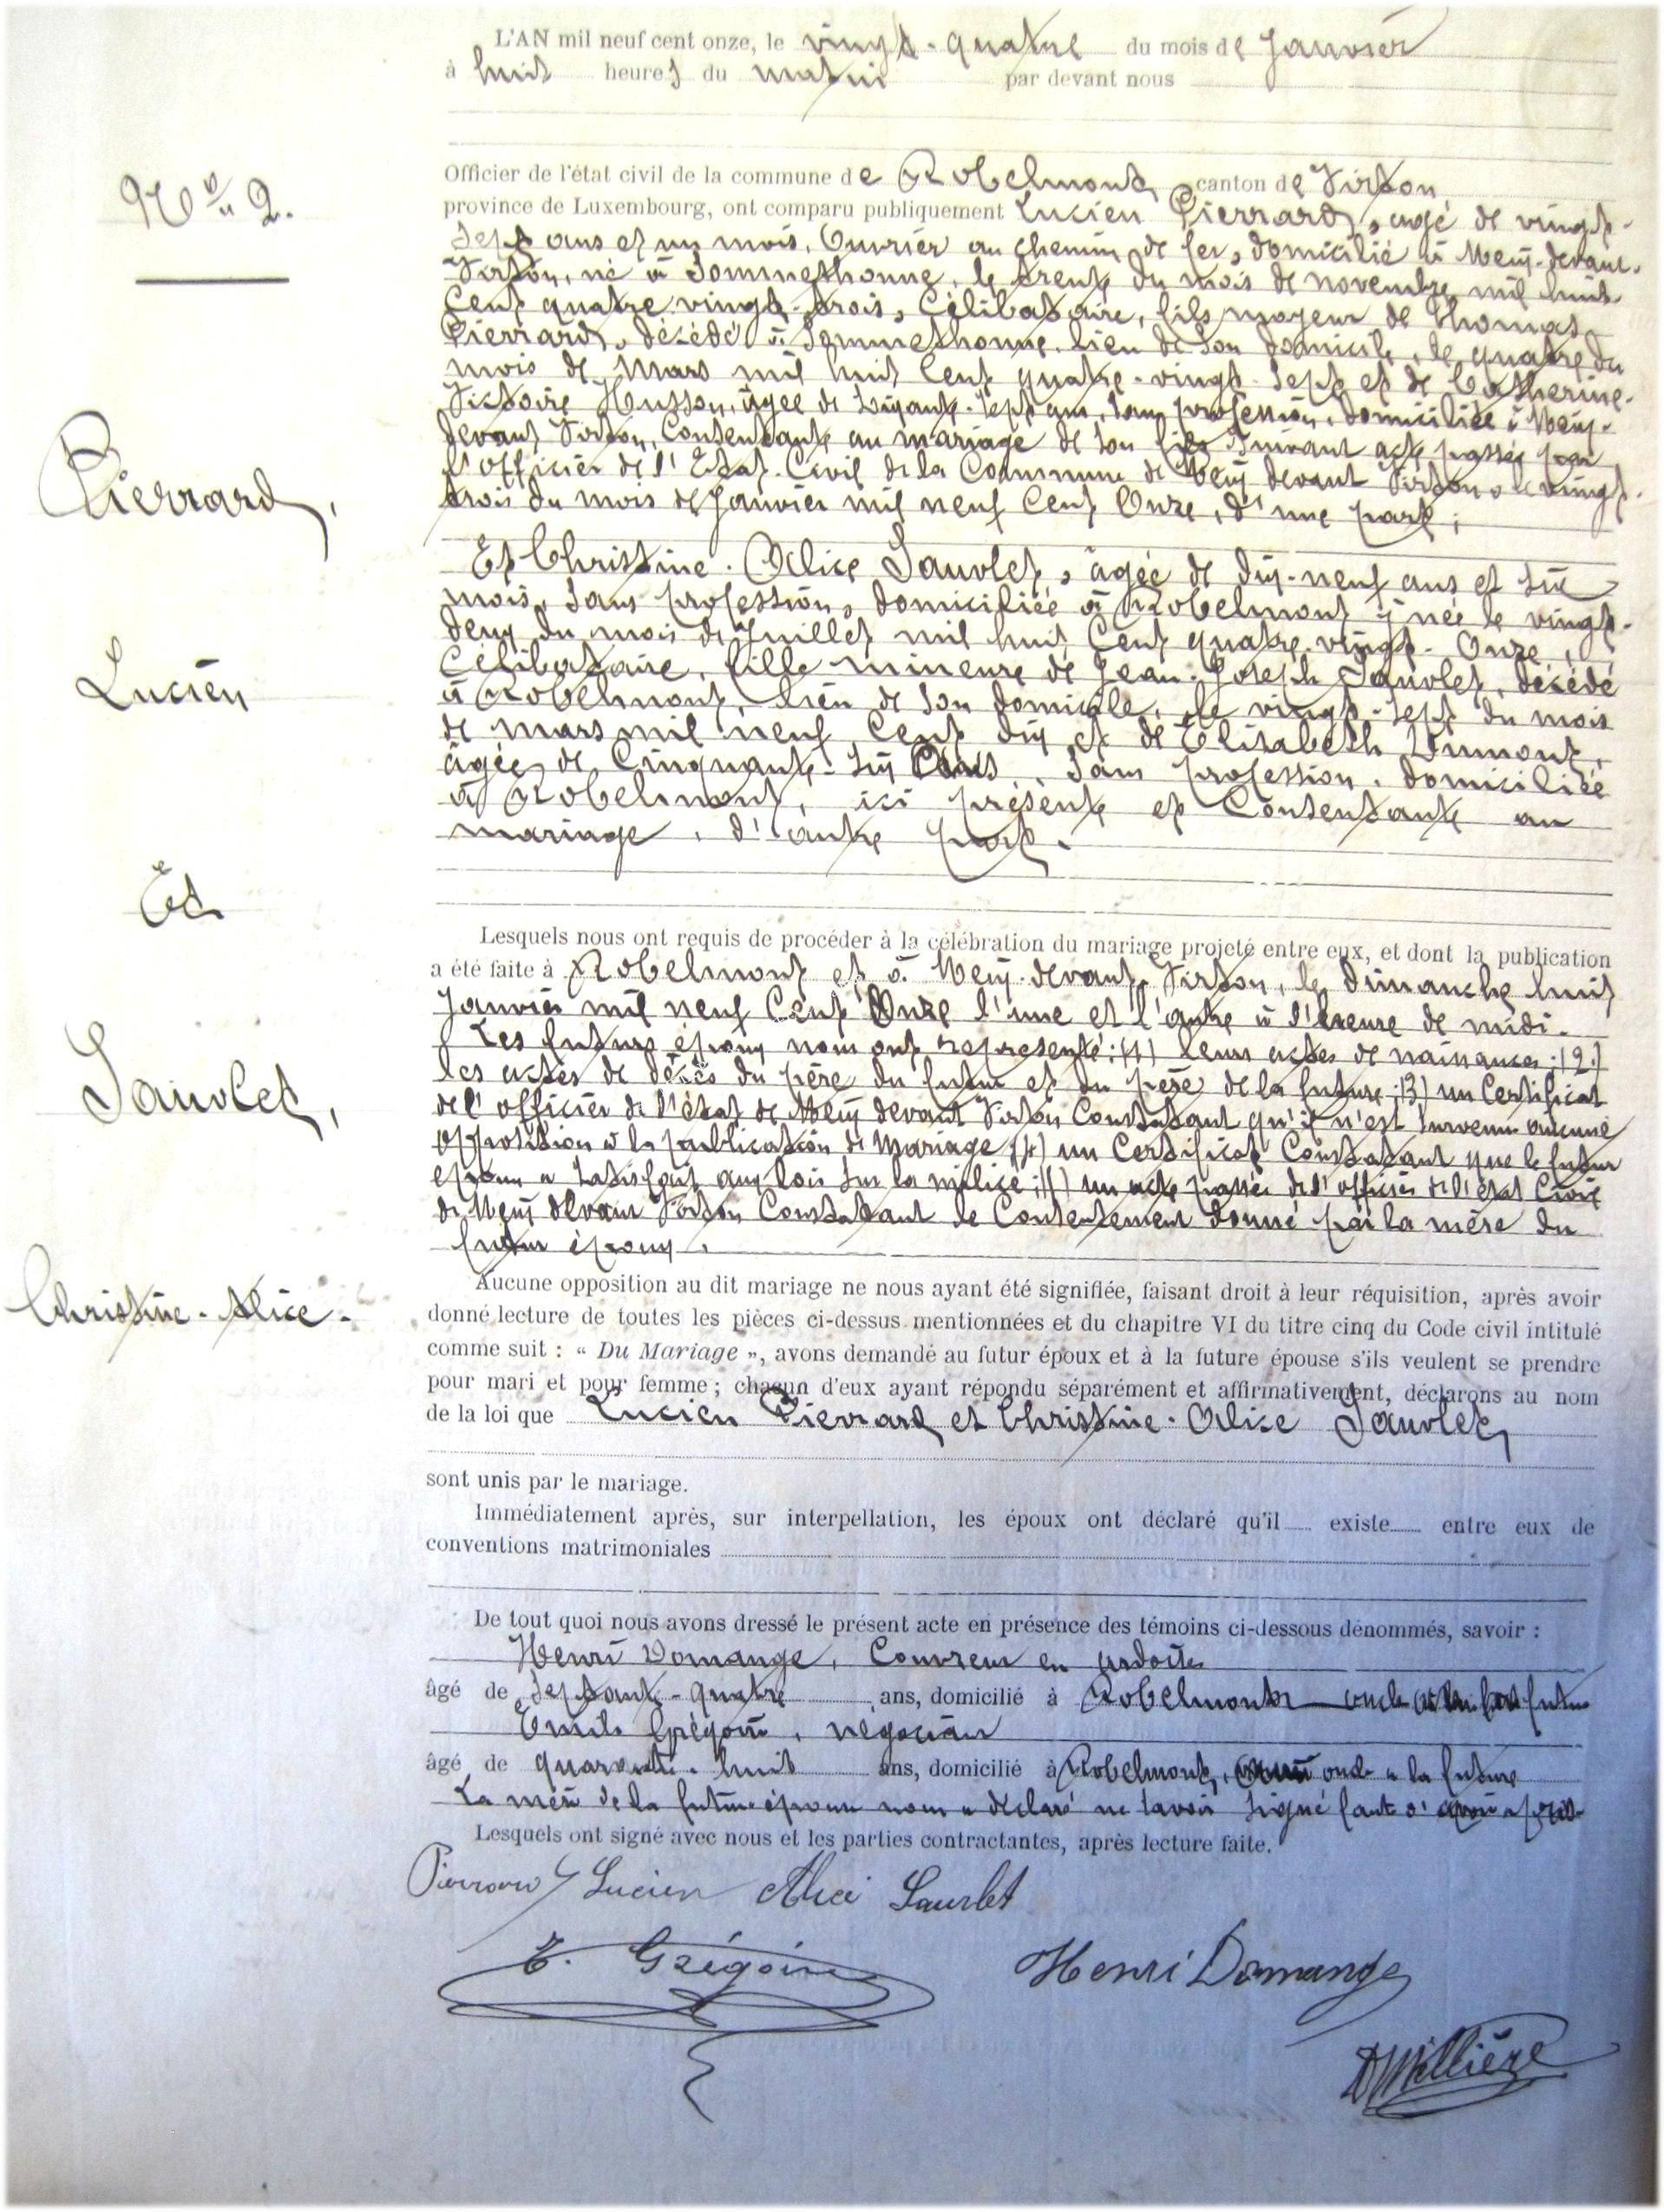 L'AN mil neuf cent onze, le vingt-quatre du mois de Janvier
à huit heures du matin par devant nous
Officier de l'état civil de la commune de Robelmont, canton de Virton
province de Luxembourg, ont comparu publiquement Lucien Pierrard, agé de vingt-
sept ans et un mois, Ouvrier au chemin de fer, domicilié à Meix-devant-
Virton, né à Sommethonne, le trente du mois de novembre mil huit-
Cent quatre-vingt-trois, Célibataire, fils majeur de Thomas
Pierrard, décédé à Sommethonne, lieu de son domicile, le quatre du
mois de Mars mil huit Cent quatre-vingt-sept et de Catherine-
Victoire Husson, âgée de soixante-sept ans, sans profession, domiciliée à Meix-
devant Virton, Consentante au mariage de son fils suivant acte passé par
l'Officier de l'Etat-Civil de la Commune de Meix devant Virton, le vingt-
trois du mois de Janvier mil neuf Cent Onze, d'une part ;
Et Christine-Alice Saurlet, âgée de dix-neuf ans et six
mois, sans profession, domiciliée à Robelmont y née le vingt-
deux du mois de Juillet mil huit Cent quatre-vingt-Onze,
Célibataire, fille mineure de Jean-Joseph Saurlet, décédé
à Robelmont, lieu de son domicile, le vingt-sept du mois
de mars mil neuf Cent dix et de Elisabeth Dumont,
âgée de Cinquante-six ans, sans profession, domiciliée
à Robelmont, ici présente et Consentante au
mariage, d'autre part.
Lesquels nous ont requis de procéder à la célébration du mariage projeté entre eux, et dont la publication
a été faite à Robelmont et à Meix-devant-Virton, le dimanche huit
Janvier mil neuf Cent Onze l'une et l'autre à l'heure de midi.
Les futurs époux nous ont représenté : (1) leurs actes de naissances ; (2)
les actes de décès du père du futur et du père de la future ; (3) un Certificat
de l'officier de l'état de Meix devant Virton Constatant qu'il n'est survenu aucune
opposition à la publication de Mariage ; (4) un Certificat Constatant que le futur
époux a satisfait aux lois sur la milice ; un acte passé de l'officier de l'état Civil
de Meix devant Virton Constatant le Consentement donné par la mère du
futur époux.
Aucune opposition au dit mariage ne nous ayant été signifiée, faisant droit à leur réquisition, après avoir
donné lecture de toutes les pièces ci-dessus mentionnées et du chapitre VI du titre cinq du Code civil intitulé
comme suit : « Du Mariage », avons demandé au futur époux et à la future épouse s'ils veulent se prendre
pour mari et pour femme ; chacun d'eux ayant répondu séparément et affirmativement, déclarons au nom
de la loi que Lucien Pierrard et Christine-Alice Saurlet
sont unis par le mariage.
Immédiatement après, sur interpellation, les époux ont déclaré qu'il existe entre eux de
conventions matrimoniales
De tout quoi nous avons dressé le présent acte en présence des témoins ci-dessous dénommés, savoir :
Henri Domange, Couvreur en ardoises
âgé de septante-quatre ans, domicilié à Robelmont oncle future
Emile Grégoire, négociant
âgé de quarante-huit ans, domicilié à Robelmont, oncle à la future
La mère de la future épouse nous a déclaré ne savoir signé faute d'avoir appris
Lesquels ont signé avec nous et les parties contractantes, après lecture faite.
Pierrard Lucien Alice Saurlet
E. Grégoire Henri Domange
D Millière
No 2.
Pierrard,
Lucien
Et
Saurlet,
Christine-Alice.